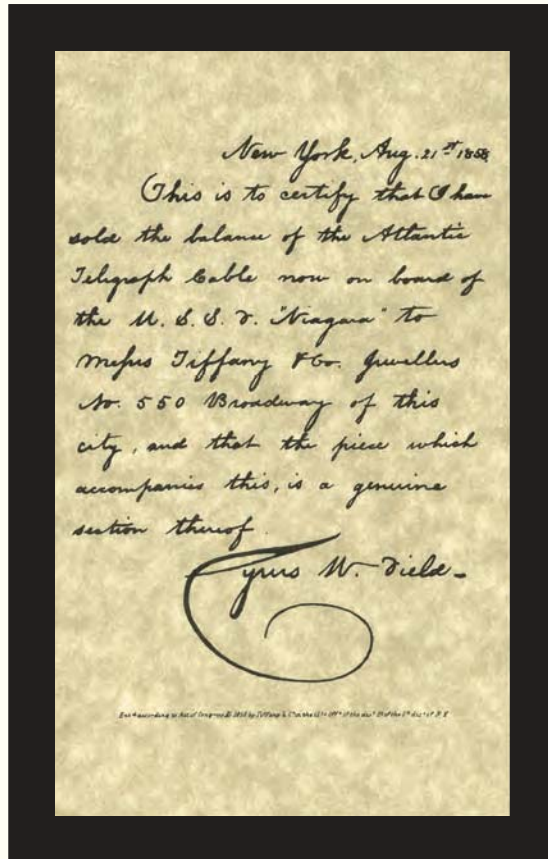 New York, Aug. 21st 1858,
This is to certify that I have
sold the balance of the Atlantic
Telegraph Cable now on board of
the U. S. S. F. "Niagara" to
Messrs Tiffany & Co. Jewellers
No. 550 Broadway of this
city, and that the piece which
accompanies this, is a genuine
section thereof.
Cyrus W. Field-
according to Act of Congress 1858 by Tiffany & Co in the of the of the